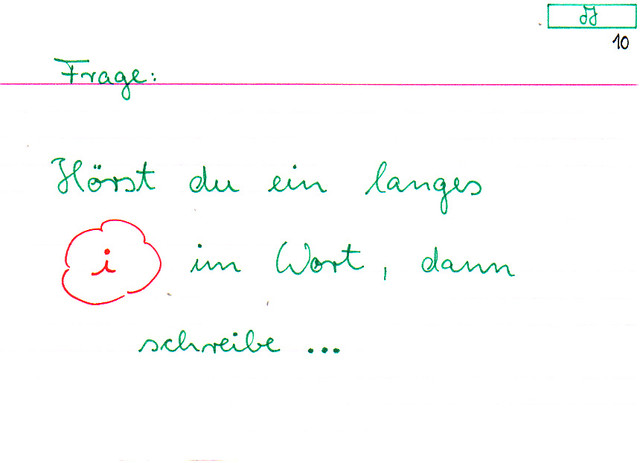 10
Frage:
Hörst du ein langes
i im Wort, dann
schreibe ...